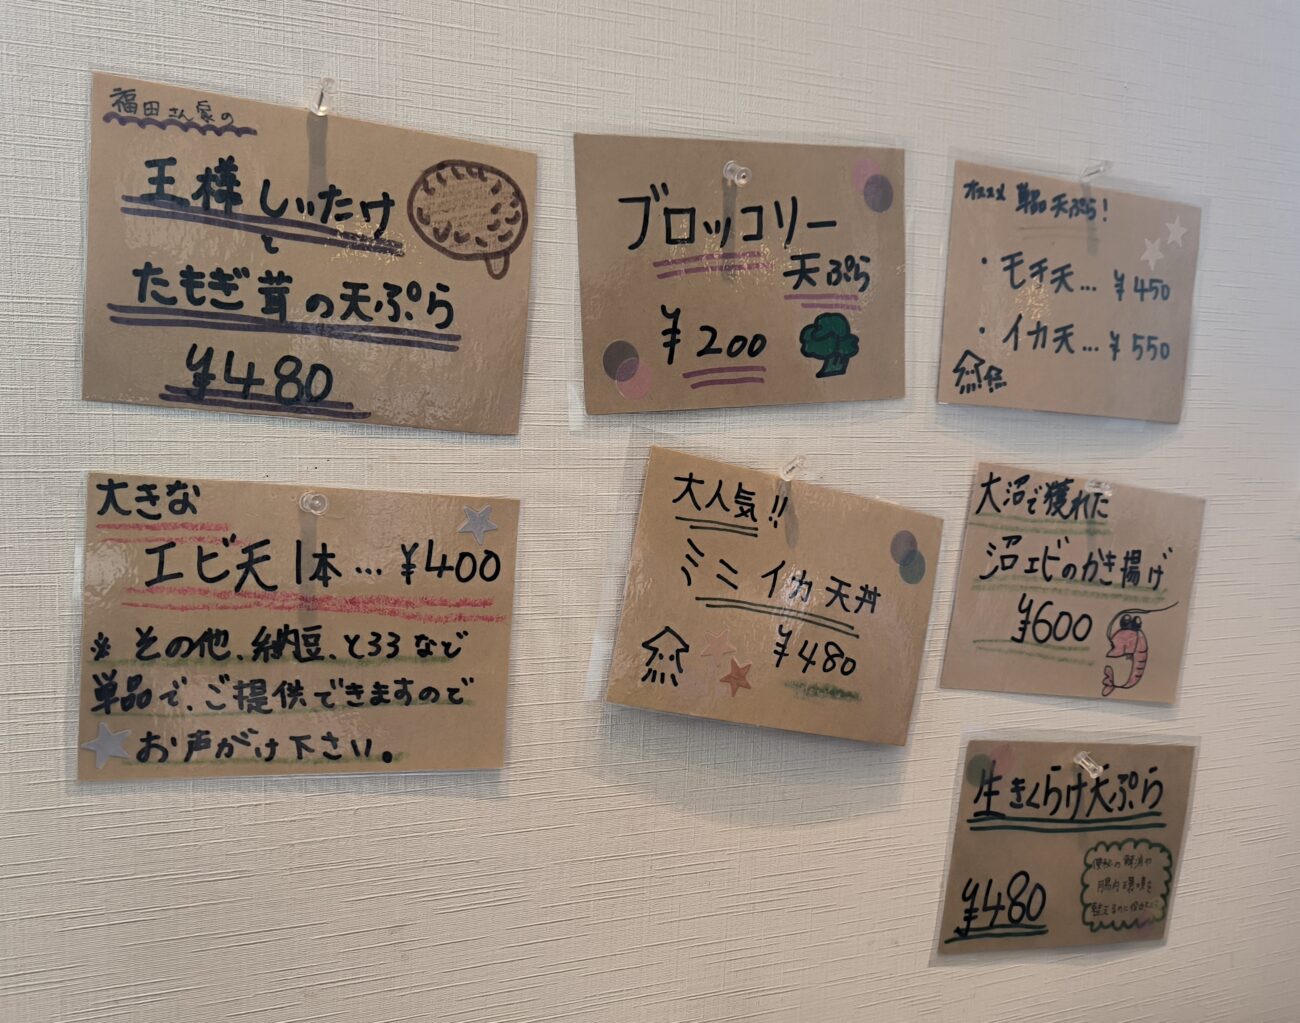 福田さん家の
王様しいたけ
と
たもぎ茸の天ぷら
¥480
ブロッコリー
天ぷら
¥200
オススメ 単品天ぷら!
・モチ天… ¥450
・イカ天… ¥550
大きな
エビ天1本… ¥400
※ その他、納豆、とろろなど
単品で、ご提供できますので
お声がけ下さい。
大人気!!
ミニイカ天丼
¥480
大沼で獲れた
沼エビのかき揚げ
¥600
生きくらげ天ぷら
¥480
便秘の解消や
腸内環境を